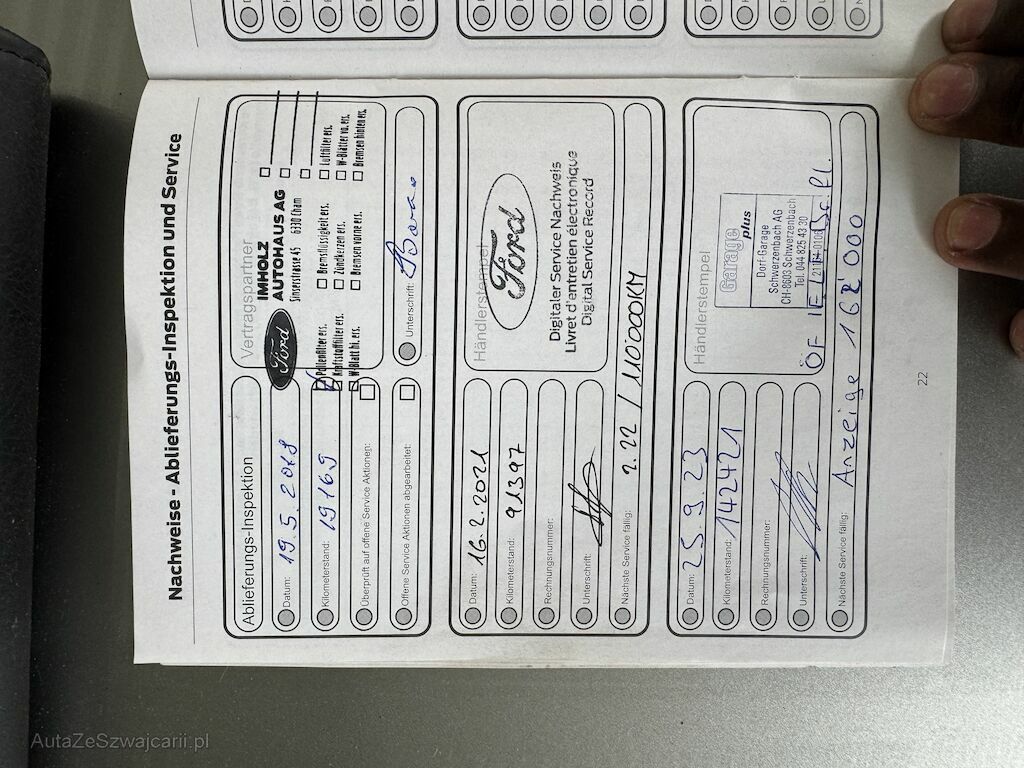 Nachweise - Ablieferungs-Inspektion und Service
Ablieferungs-Inspektion
Datum: 19.5.2018
Kilometerstand: 19169
Überprüft auf offene Service Aktionen:
Offene Service Aktionen abgearbeitet:
Vertragspartner
Ford
IMHOLZ
AUTOHAUS AG
Sinserstrasse 45 6330 Cham
Pollenfilter ers. Bremsflüssigkeit ers. Luftfilter ers.
Kraftstofffilter ers. Zündkerzen ers. W-Blätter vo. ers.
W-Blatt hi. ers. Bremsen vorne ers. Bremsen hinten ers.
Unterschrift:
Datum: 16.2.2021
Kilometerstand: 91397
Rechnungsnummer:
Unterschrift:
Nächste Service fällig: 2.22 / 110000KM
Händlerstempel
Ford
Digitaler Service Nachweis
Livret d'entretien électronique
Digital Service Record
Datum: 25.9.23
Kilometerstand: 142421
Rechnungsnummer:
Unterschrift:
Nächste Service fällig: Anzeige 162'000
Händlerstempel
Garage plus
Dorf-Garage
Schwerzenbach AG
CH-8603 Schwerzenbach
Tel. 044 825 43 30
ÖF
22
AutaZeSzwajcarii.pl